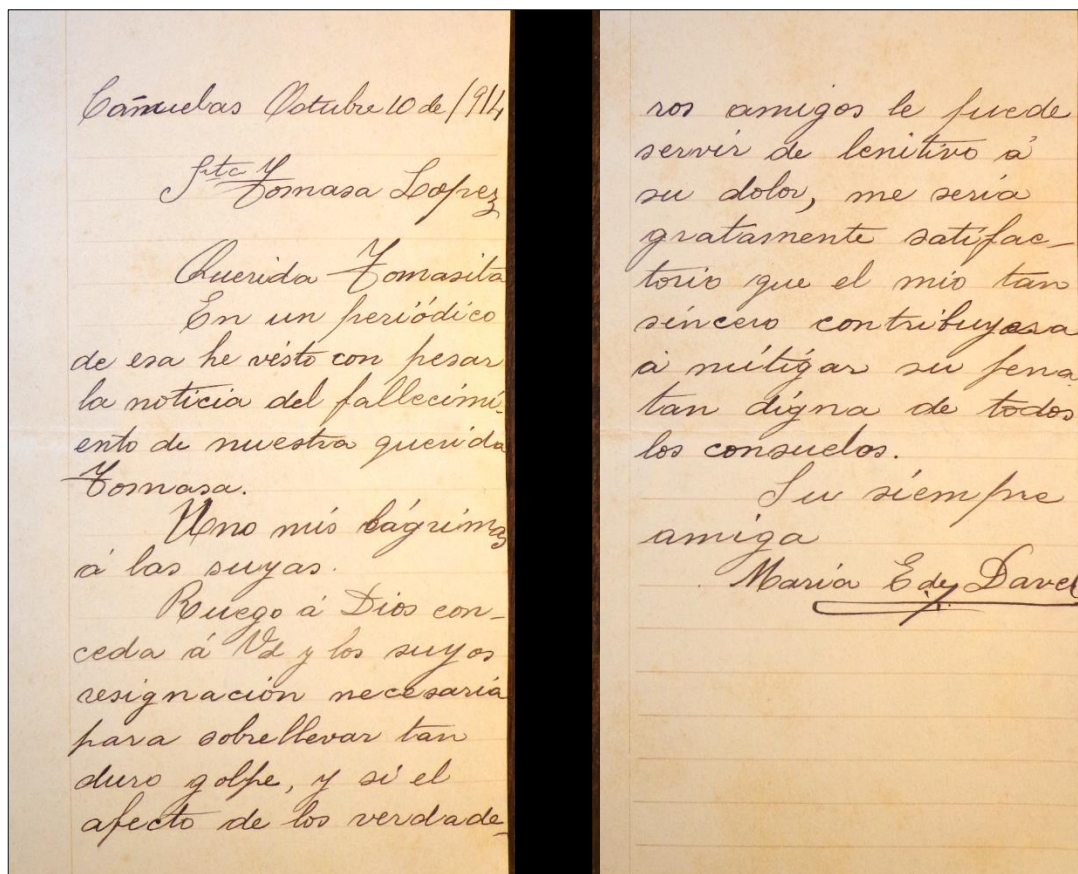 Cañuelas Octubre 10 de /914
Srta Tomasa Lopez
Querida Tomasita
En un periódico
de esa he visto con pesar
la noticia del fallecimi-
ento de nuestra querida
Tomasa.
Uno mis lágrimas
á las suyas.
Ruego á Dios con-
ceda á Vd y los suyos
resignación necesaria
para sobrellevar tan
duro golpe, y si el
afecto de los verdade-
ros amigos le puede
servir de lenitivo á
su dolor, me seria
gratamente satifac-
torio que el mio tan
sincero contribuyera
á mitigar su pena
tan digna de todos
los consuelos.
Su siempre
amiga
María E de Davel